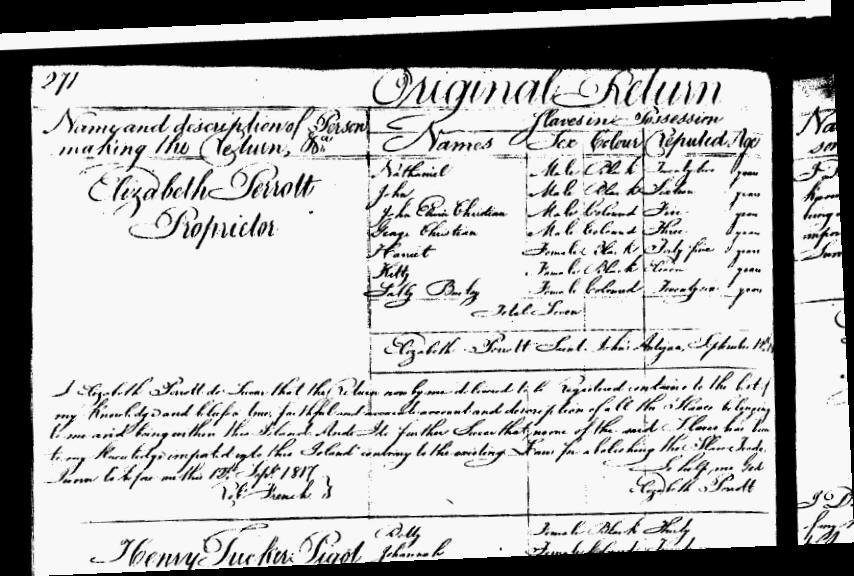 271
Original Return
Name and description of Person making the Return, &ca
Slaves in Possession
Names Sex Colour Reputed Age
Elizabeth Perrott
Proprietor
Nathaniel Male Black Twenty five years
John Male Black Sixteen years
John Christian Male Coloured Five years
George Christian Male Coloured Three years
Harriet Female Black Forty five years
Kitty Female Black years
Sally Female Coloured years
Total Seven
Elizabeth Perrott Saint John's Antigua, September
I Elizabeth Perrott do Swear that the Return now by me delivered to be Registered contains to the best of
my Knowledge and belief a true, faithful and accurate account and description of all the Slaves belonging
to me and being within this Island And I do further Swear that none of the said Slaves has been
to my Knowledge imported into this Island contrary to the existing Laws for abolishing the Slave Trade.
So help me God
Sworn to before me this Sept. 1817
Elizabeth Perrott
French
Henry Tucker Pigot
Dolly Female Black Thirty
Johannah Female